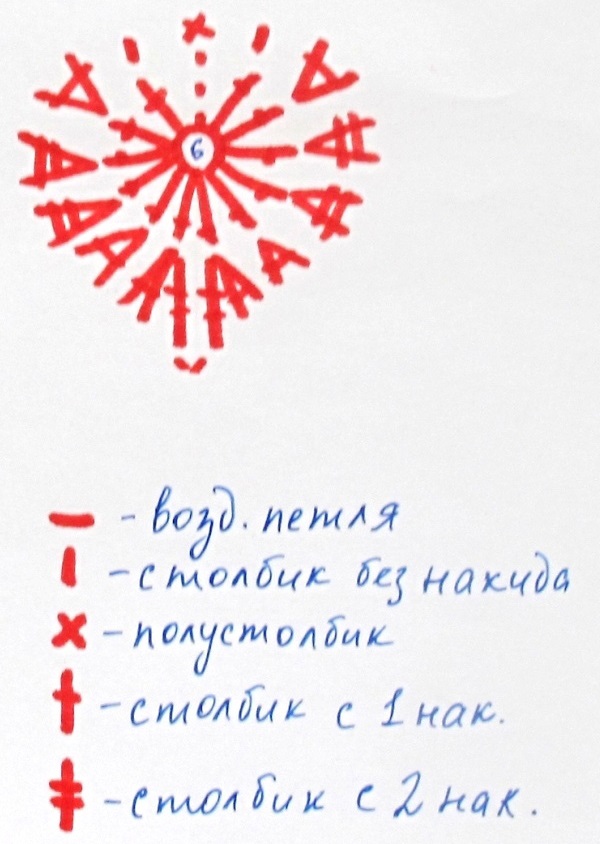 6
- возд. петля
- столбик без накида
- полустолбик
- столбик с 1 нак.
- столбик с 2 нак.